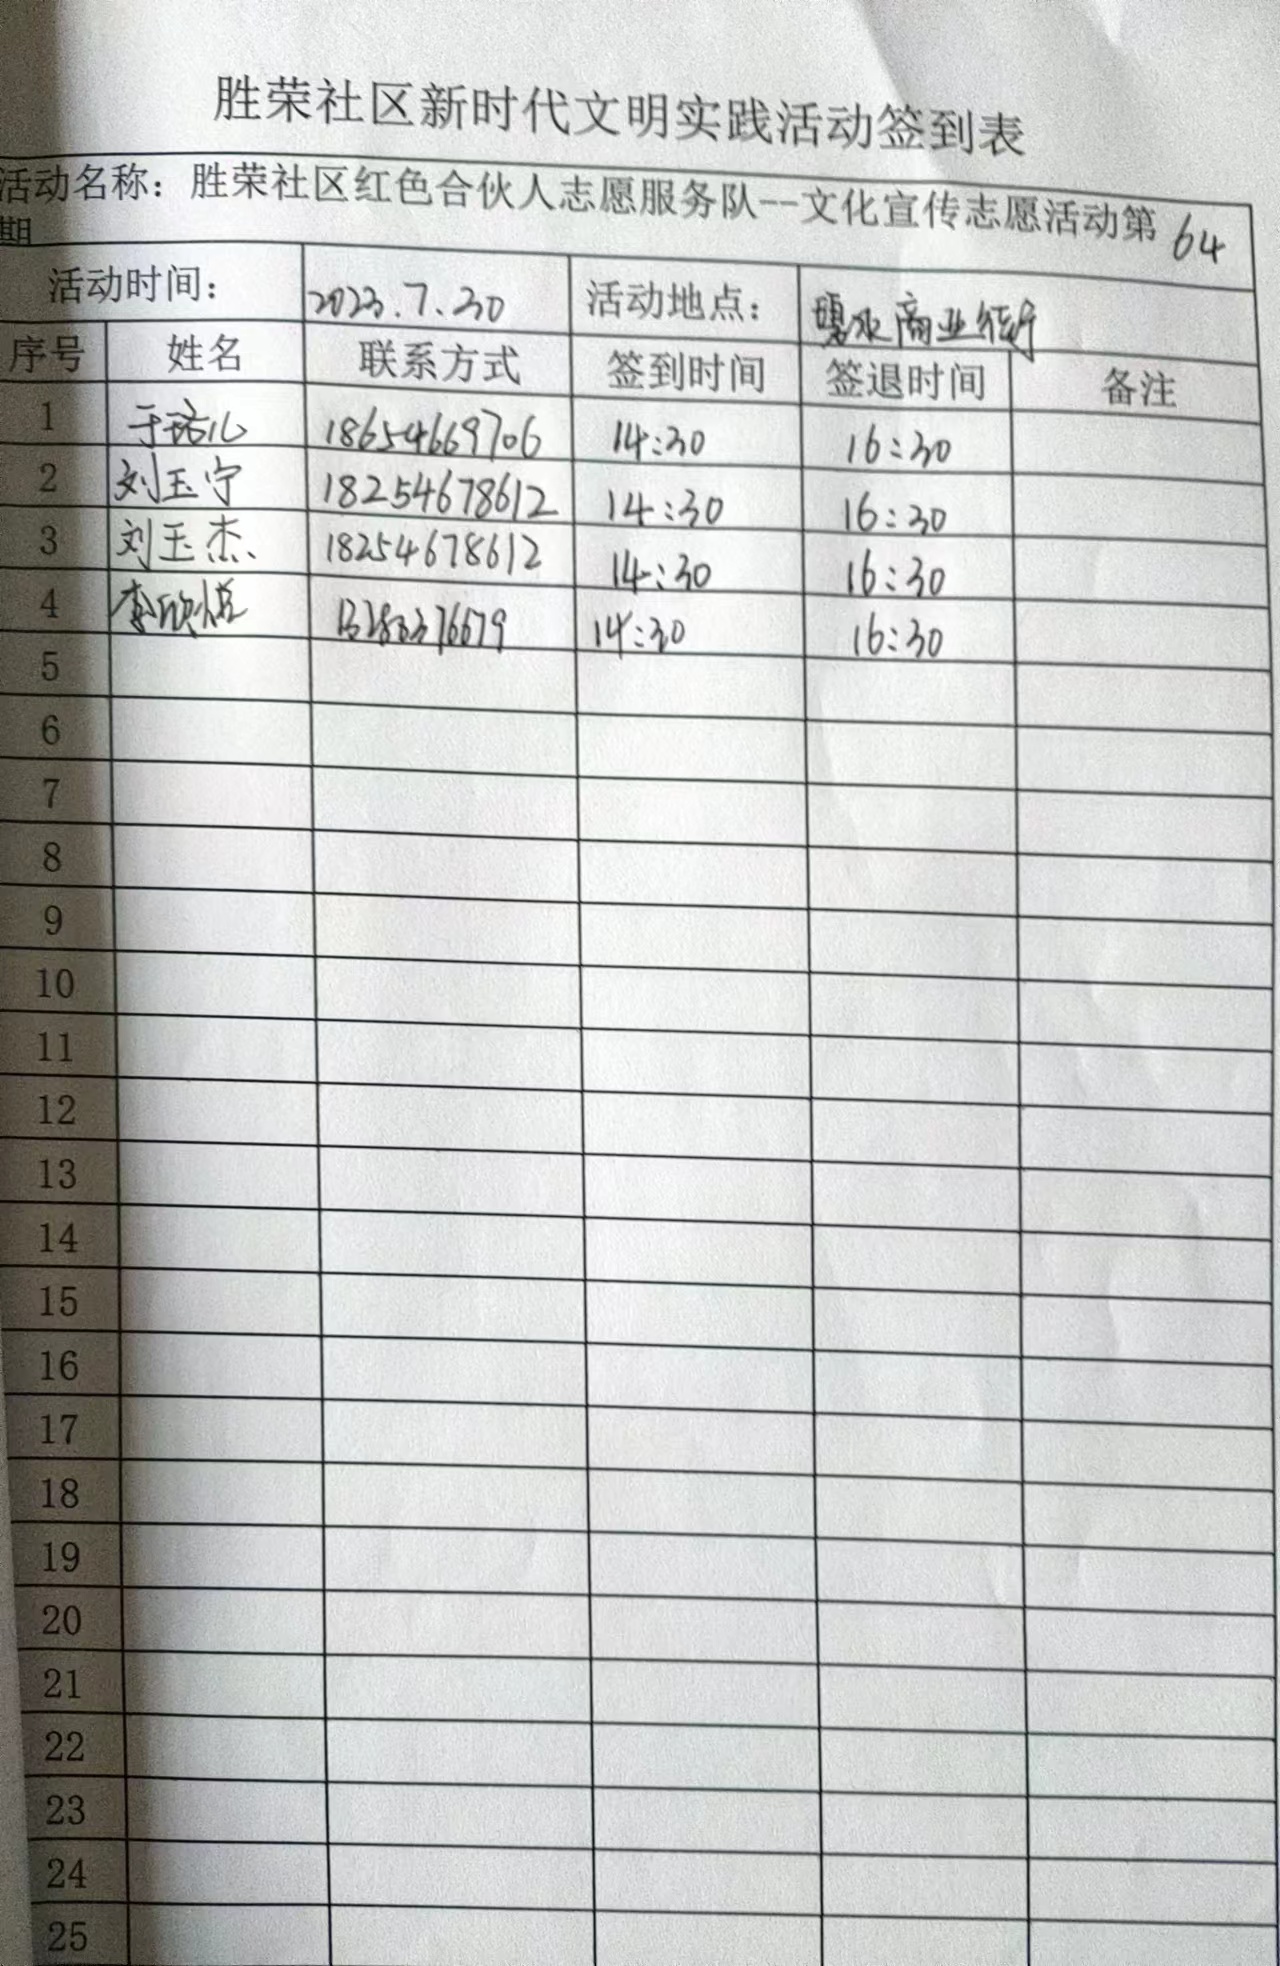 胜荣社区新时代文明实践活动签到表
活动名称：胜荣社区红色合伙人志愿服务队--文化宣传志愿活动第 64
期
活动时间： 2023.7.30 活动地点： 商业街
序号 姓名 联系方式 签到时间 签退时间 备注
1 于 18654669706 14:30 16:30
2 刘玉宁 18254678612 14:30 16:30
3 刘玉杰 18254678612 14:30 16:30
4 李欣悦 14:30 16:30
5
6
7
8
9
10
11
12
13
14
15
16
17
18
19
20
21
22
23
24
25